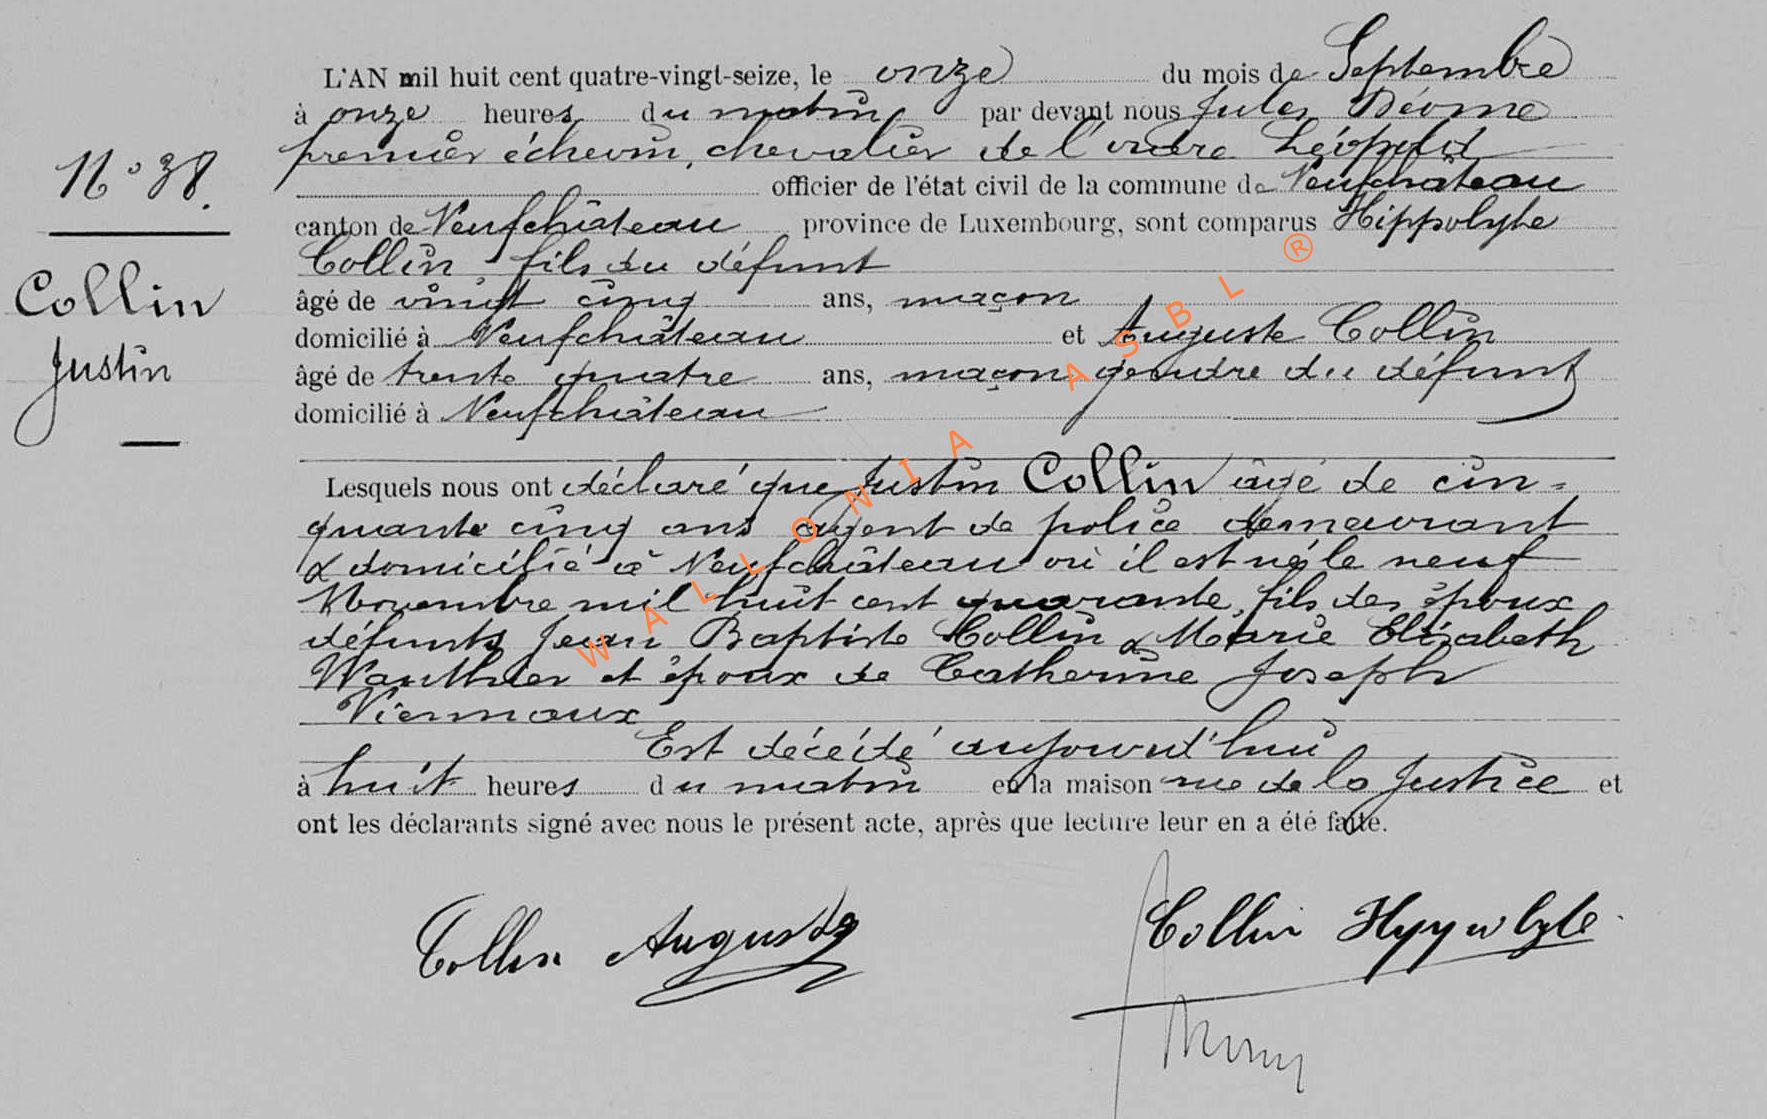 L'AN mil huit cent quatre-vingt-seize, le onze du mois de Septembre
à onze heures du matin par devant nous Jules Déome
premier échevin, chevalier de l'ordre Léopold
officier de l'état civil de la commune de Neufchâteau
N° 38.
canton de Neufchâteau province de Luxembourg, sont comparus Hippolyte
Collin, fils du défunt
Collin
Justin
âgé de vingt cinq ans, maçon
domicilié à Neufchâteau et Auguste Collin
âgé de trente quatre ans, maçon gendre du défunt
domicilié à Neufchâteau
Lesquels nous ont déclaré que Justin Collin âgé de cin=
quante cinq ans agent de police demeurant
& domicilié à Neufchâteau où il est né le neuf
Novembre mil huit cent quarante, fils des époux
défunts Jean Baptiste Collin & Marie Elisabeth
Wauthier et époux de Catherine Joseph
Viennaux
Est décédé aujourd'hui
à huit heures du matin en la maison rue de la Justice et
ont les déclarants signé avec nous le présent acte, après que lecture leur en a été faite.
Collin Auguste
Collin Hyppolyte
WALLONIA ASBL ®